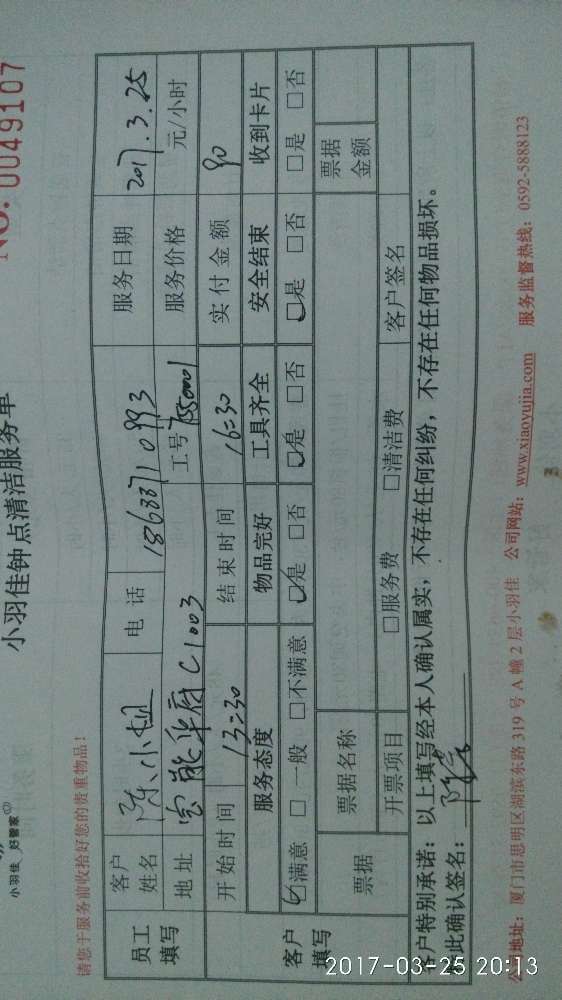 小羽佳 好管家
小羽佳钟点清洁服务单
NO. 0049107
请您于服务前收拾好您的贵重物品！
员工填写 客户姓名 陈小姐 电话 服务日期 2017.3.25
地址 C1003 工号 服务价格 元/小时
客户填写 开始时间 13:30 结束时间 16:30 实付金额 90
服务态度 物品完好 工具齐全 安全结束 收到卡片
满意 □一般 □不满意 是 □否 是 □否 是 □否 □是 □否
票据 票据名称 票据金额
开票项目 □服务费 □清洁费 客户签名
客户特别承诺：以上填写经本人确认属实，不存在任何纠纷，不存在任何物品损坏。
特此确认签名：
公司地址：厦门市思明区湖滨东路319号A幢2层小羽佳 公司网站：www.xiaoyujia.com 服务监督热线：0592-5888123
2017-03-25 20:13